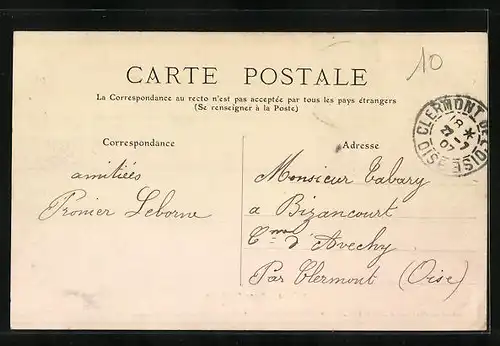 10
CARTE POSTALE
La Correspondance au recto n'est pas acceptée par tous les pays étrangers
(Se renseigner à la Poste)
CLERMONT DE L'OISE
OISE
18 *
Correspondance
Adresse
amitiés
Pronier Leborne
Monsieur Tabary
a Bizancourt
Cne d'Avechy
Par Clermont (Oise)